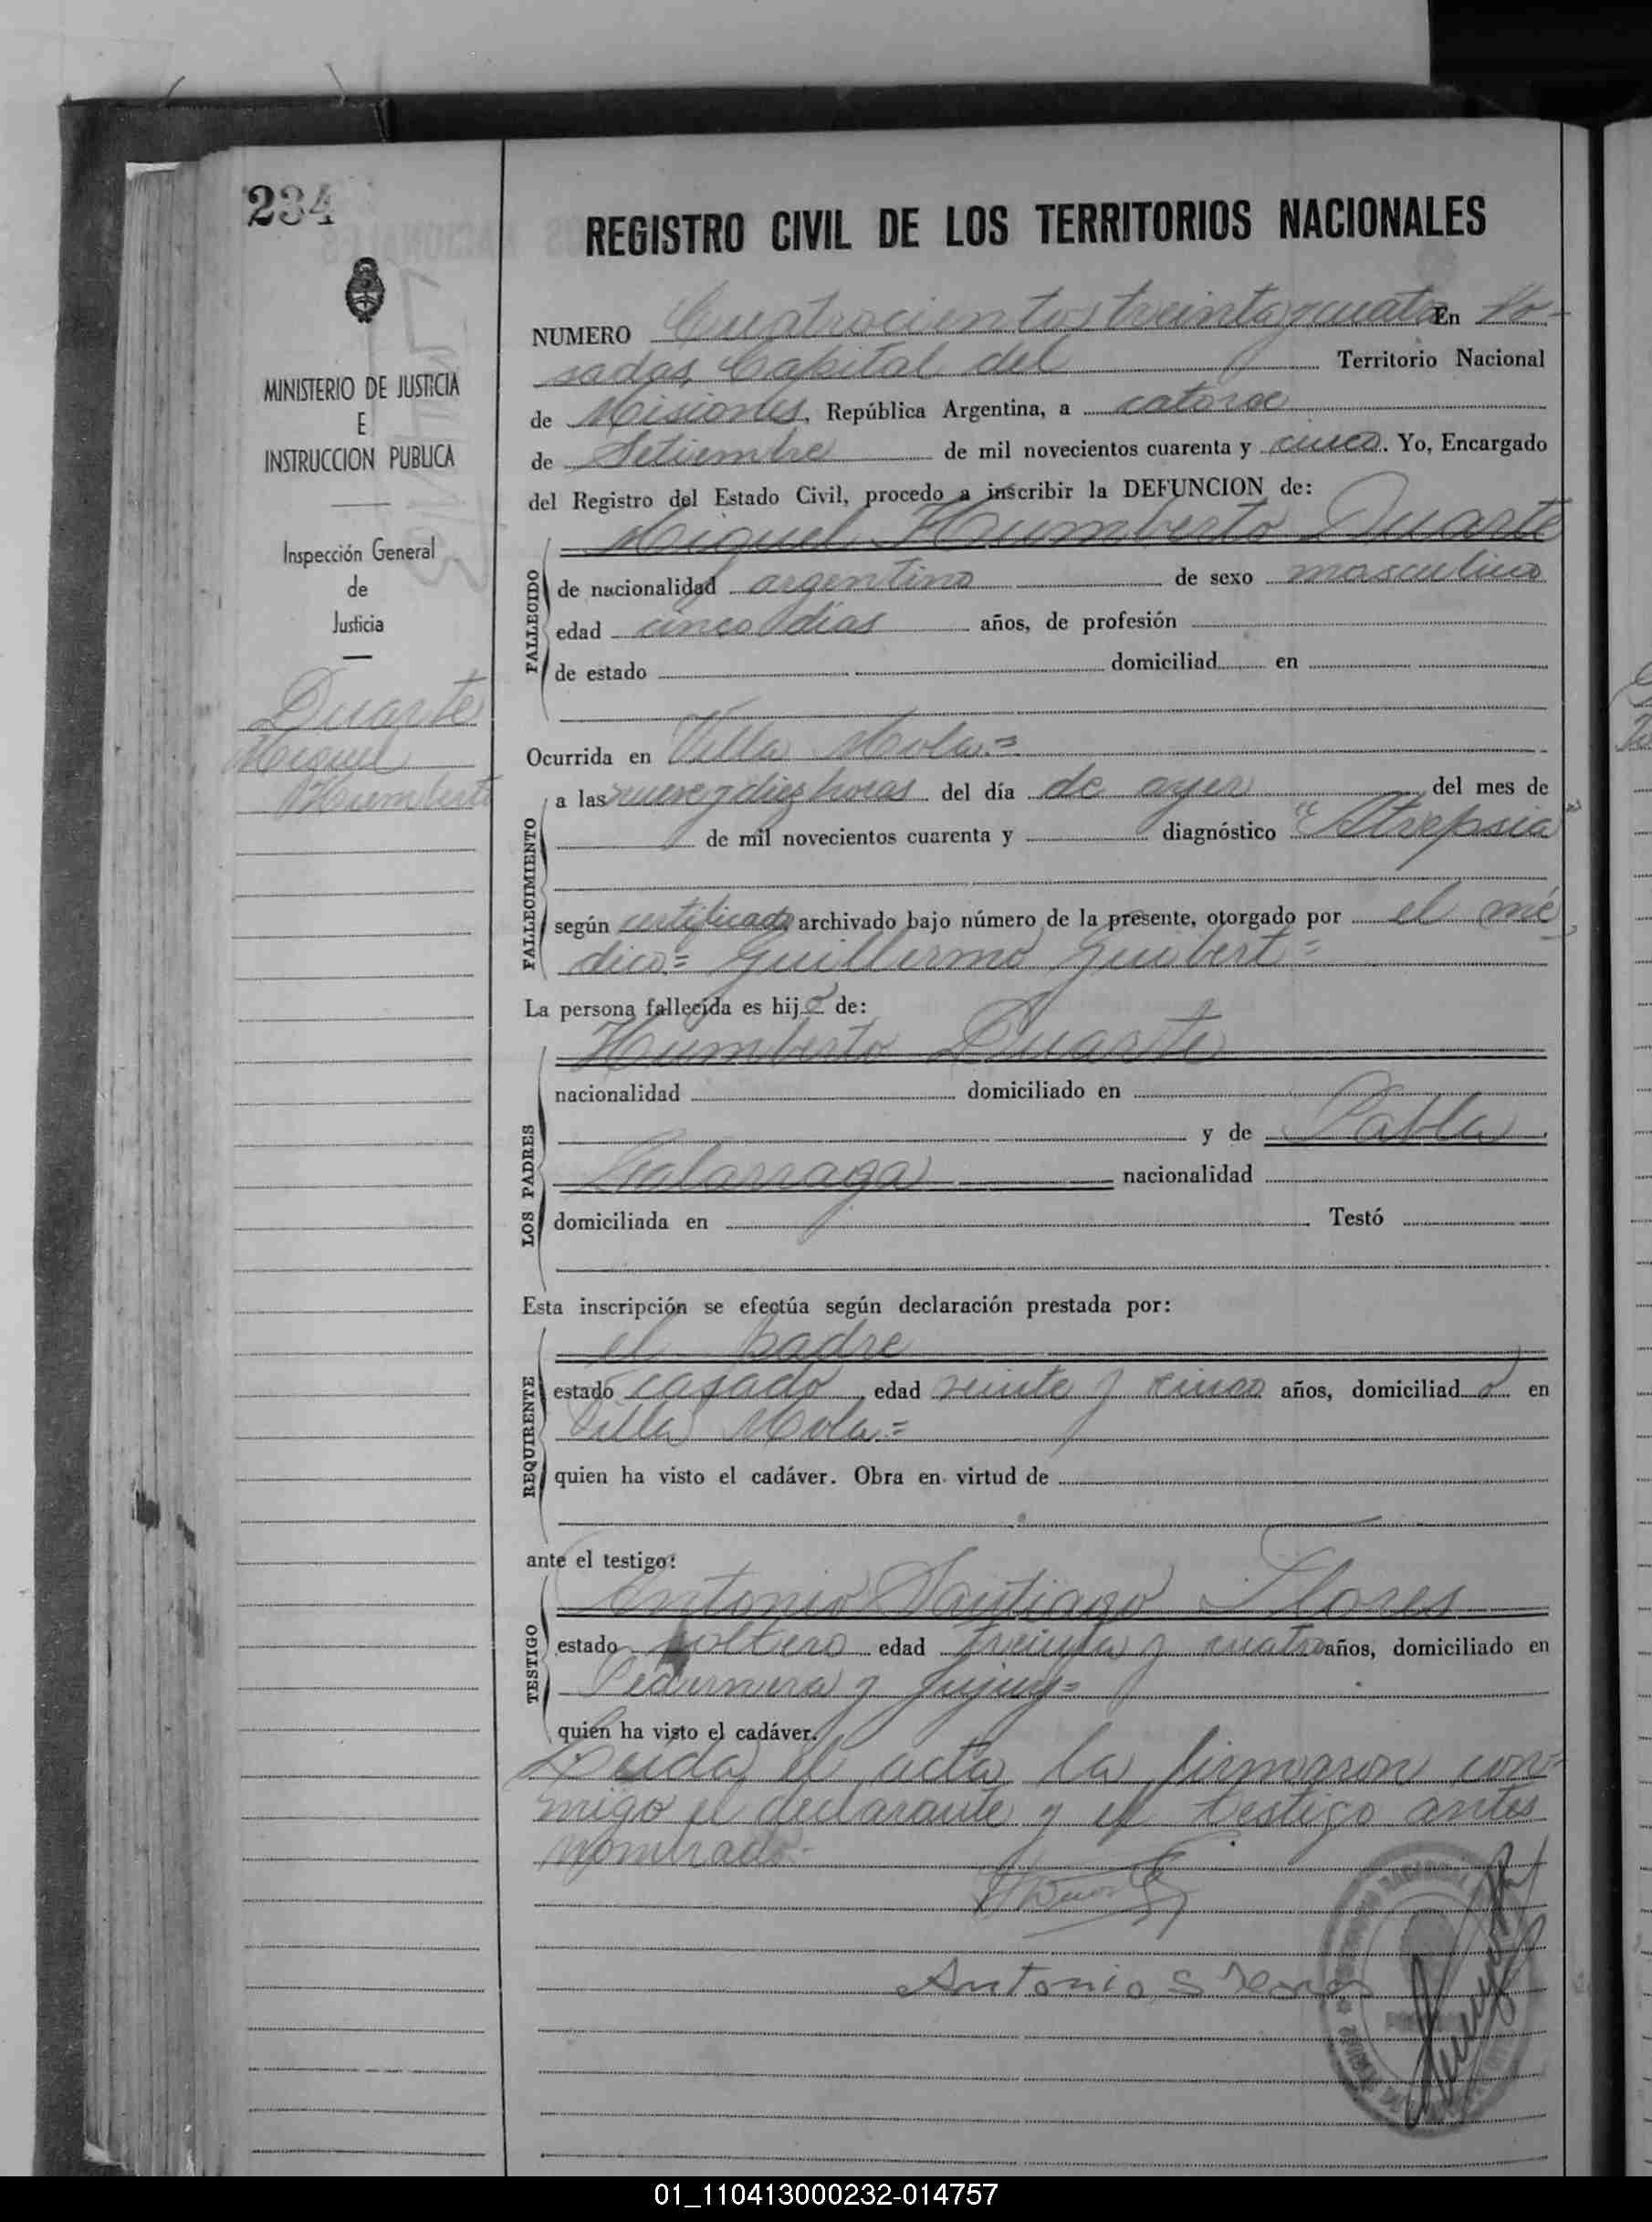 234
MINISTERIO DE JUSTICIA
E
INSTRUCCION PUBLICA
Inspección General
de
Justicia
Duarte
Miguel
Humberto
REGISTRO CIVIL DE LOS TERRITORIOS NACIONALES
NUMERO Cuatrocientos treinta y cuatro En Po-
sadas, Capital del Territorio Nacional
de Misiones, República Argentina, a catorce
de Setiembre de mil novecientos cuarenta y cinco. Yo, Encargado
del Registro del Estado Civil, procedo a inscribir la DEFUNCION de:
Miguel Humberto Duarte
FALLECIDO
de nacionalidad argentino de sexo masculino
edad cinco días años, de profesión
de estado domiciliad en
Ocurrida en Villa Mola.=
FALLECIMIENTO
a las nueve y diez horas del día de ayer del mes de
de mil novecientos cuarenta y diagnóstico "Atrepsia"
según certificado archivado bajo número de la presente, otorgado por el mé
dico= Guillermo Guibert=
La persona fallecida es hijo de:
LOS PADRES
Humberto Duarte
nacionalidad domiciliado en
y de Pabla
Galarraga nacionalidad
domiciliada en Testó
Esta inscripción se efectúa según declaración prestada por:
REQUIRENTE
el padre
estado casado edad veinte y cinco años, domiciliado en
Villa Mola.=
quien ha visto el cadáver. Obra en virtud de
ante el testigo:
TESTIGO
Antonio Santiago Flores
estado soltero edad treinta y cuatro años, domiciliado en
Pedernera y Jujuy=
quien ha visto el cadáver.
Leída el acta la firmaron con-
migo el declarante y el testigo antes
nombrado.-
Antonio S
01_110413000232-014757